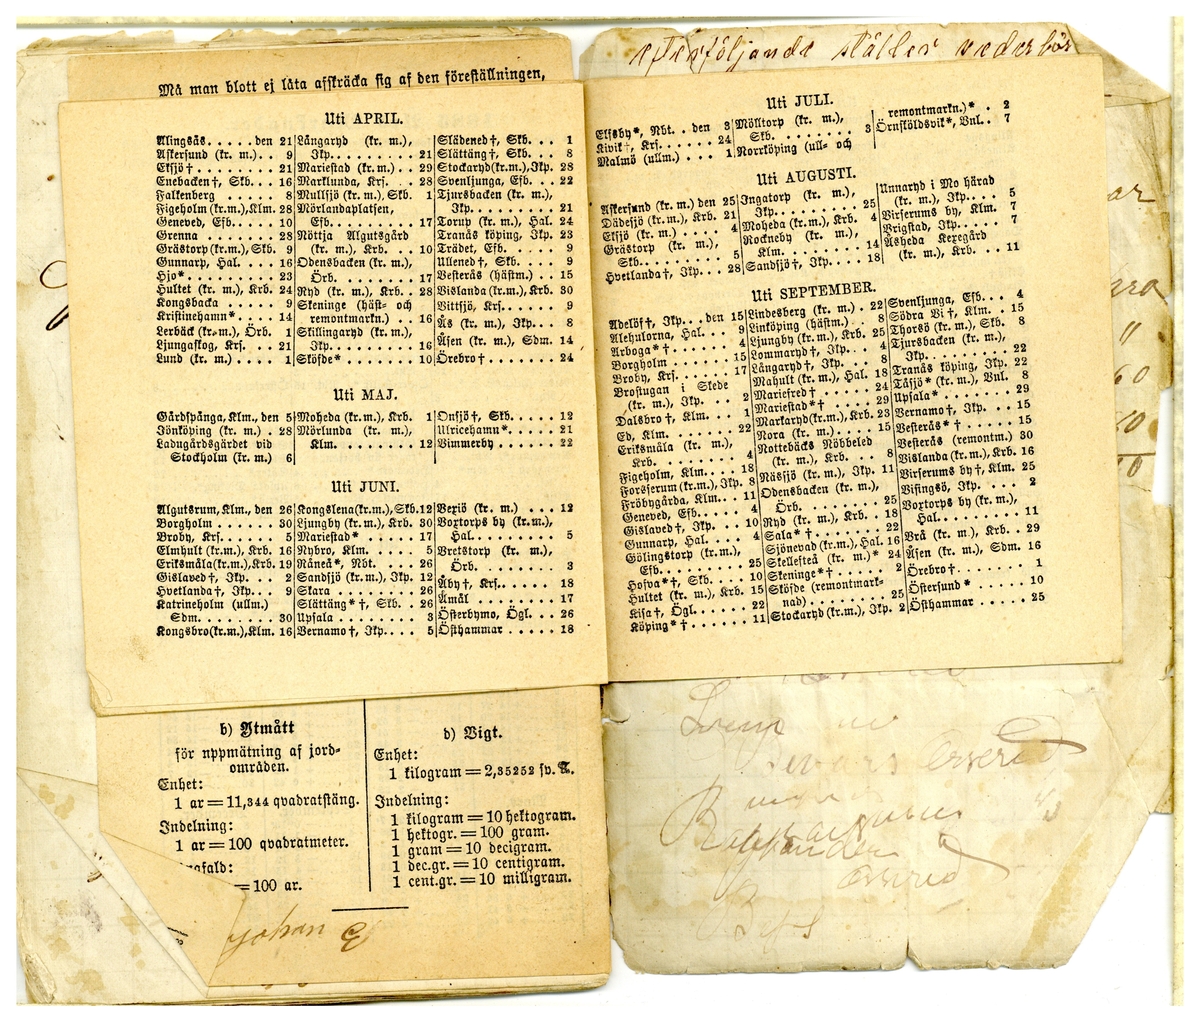 efterföljande ställes vederbör
Må man blott ej låta afskräcka sig af den föreställningen,
Uti APRIL.
Alingsås. . . . . den 21
Askersund (kr. m.) . . 9
Eksjö† . . . . . . . 21
Enebacken†, Skb. . . 16
Falkenberg . . . . . 8
Figeholm (kr.m.), Klm. 28
Geneved, Esb. . . . . 10
Grenna . . . . . . . 28
Grästorp (kr.m.), Skb. 9
Gunnarp, Hal. . . . 16
Hjo* . . . . . . . . 23
Hultet (kr. m.), Krb. 24
Kongsbacka . . . . . 9
Kristinehamn* . . . . 14
Lerbäck (kr. m.), Örb. 1
Ljungaskog, Krs. . . . 21
Lund (kr. m.) . . . . 1
Långaryd (kr. m.),
Jkp. . . . . . . . 21
Mariestad (kr. m.) . . 29
Marklunda, Krj. . . . 28
Mullsjö (kr. m.), Skb. 1
Mörlandaplatsen,
Esb. . . . . . . . 17
Nöttja Algutsgård
(kr. m.), Krb. . . . 10
Odensbacken (kr. m.),
Örb. . . . . . . . 17
Ryd (kr. m.), Krb. . . 28
Skeninge (häst- och
remontmarkn.) . . 16
Skillingaryd (kr. m.),
Jkp. . . . . . . . 16
Sköfde* . . . . . . . 10
Slädened†, Skb. . . . 1
Slättäng†, Skb. . . . 8
Stockaryd (kr.m.), Jkp. 28
Svenljunga, Esb. . . . 22
Tjursbacken (kr. m.),
Jkp. . . . . . . . . 21
Torup (kr. m.), Hal. . 24
Tranås köping, Jkp. . 23
Trädet, Esb. . . . . . 9
Ullened†, Skb. . . . . 9
Vesterås (hästm.) . . 15
Vislanda (kr.m.), Krb. 30
Vittsjö, Krs. . . . . . 9
Ås (kr. m.), Jkp. . . . 8
Åsen (kr. m.), Sdm. . 14
Örebro† . . . . . . . 24
Uti MAJ.
Gårdspånga, Klm., den 5
Jönköping (kr. m.) . . 28
Ladugårdsgärdet vid
Stockholm (kr. m.) 6
Moheda (kr. m.), Krb. 1
Mörlunda (kr. m.),
Klm. . . . . . . . 12
Onsjö†, Skb. . . . . . 12
Ulricehamn* . . . . . 21
Vimmerby . . . . . . 22
Uti JUNI.
Algutsrum, Klm., den 26
Borgholm . . . . . . 30
Broby, Krs. . . . . . . 5
Elmhult (kr.m.), Krb. 16
Eriksmåla (kr.m.), Krb. 19
Gislaved†, Jkp. . . . 2
Hvetlanda†, Jkp. . . 9
Katrineholm (ullm.)
Sdm. . . . . . . . 30
Kongsbro (kr.m.), Klm. 16
Kongslena (kr.m.), Skb. 12
Ljungby (kr. m.), Krb. 30
Mariestad* . . . . . 17
Nybro, Klm. . . . . . 5
Råneå*, Nbt. . . . . 26
Sandsjö (kr. m.), Jkp. 12
Skara . . . . . . . . 26
Slättäng*†, Skb. . . . 26
Upsala . . . . . . . . 3
Vernamo†, Jkp. . . . 5
Vexiö (kr. m.) . . . . 12
Voxtorps by (kr. m.),
Hal. . . . . . . . . 5
Vretstorp (kr. m.),
Örb. . . . . . . . 3
Åby†, Krs. . . . . . . 18
Åmål . . . . . . . . 17
Österbymo, Ögl. . . . 26
Östhammar . . . . . 18
Uti JULI.
Elfsby*, Nbt. . . den 3
Kivik†, Krs. . . . . . 24
Malmö (ullm.) . . . . 1
Mölltorp (kr. m.),
Skb. . . . . . . . . 3
Norrköping (ull- och
remontmarkn.)* . . 2
Örnsköldsvik*, Vnl. . . 7
Uti AUGUSTI.
Askersund (kr. m.) den 25
Dädesjö (kr. m.), Krb. 21
Eksjö (kr. m.) . . . . 4
Grästorp (kr. m.),
Skb. . . . . . . . . 5
Hvetlanda†, Jkp. . . 28
Ingatorp (kr. m.),
Jkp. . . . . . . . 25
Moheda (kr. m.), Krb. 4
Rockneby (kr. m.),
Klm. . . . . . . . 14
Sandsjö†, Jkp. . . . 18
Unnaryd i Mo härad
(kr. m.), Jkp. . . . 5
Virserums by, Klm. . 7
Vrigstad, Jkp. . . . . 7
Åsheda Kexegård
(kr. m.), Krb. . . . 11
Uti SEPTEMBER.
Adelöf†, Jkp. . . den 15
Alehulorna, Hal. . . . 9
Arboga*† . . . . . . 4
Borgholm . . . . . . 15
Broby, Krs. . . . . . 17
Brostugan i Skede
(kr. m.), Jkp. . . . 2
Dalsbro†, Klm. . . . 1
Ed, Klm. . . . . . . 22
Eriksmåla (kr. m.),
Krb. . . . . . . . . 4
Figeholm, Klm. . . . 18
Forserum (kr.m.), Jkp. 8
Fröbygårda, Klm. . . 11
Geneved, Esb. . . . . 4
Gislaved†, Jkp. . . . 10
Gunnarp, Hal. . . . . 4
Gölingstorp (kr. m.),
Esb. . . . . . . . 25
Hofva*†, Skb. . . . . 10
Hultet (kr. m.), Krb. 15
Kisa†, Ögl. . . . . . 22
Köping*† . . . . . . 11
Lindesberg (kr. m.) . 22
Linköping (hästm.) . . 8
Ljungby (kr. m.), Krb. 25
Lommaryd†, Jkp. . . 4
Långaryd†, Jkp. . . . 8
Mahult (kr. m.), Hal. 18
Mariefred† . . . . . 24
Mariestad*† . . . . . 29
Markaryd (kr.m.), Krb. 23
Nora (kr. m.) . . . . 15
Nottebäcks Nöbbeled
(kr. m.), Krb. . . . 8
Nässjö (kr. m.), Jkp. 11
Odensbacken (kr. m.),
Örb. . . . . . . . 25
Ryd (kr. m.), Krb. . . 18
Sala*† . . . . . . . 22
Sjönevad (kr.m.), Hal. 16
Skellefteå (kr. m.)* 24
Skeninge*† . . . . . 2
Sköfde (remontmark-
nad) . . . . . . . 25
Stockaryd (kr.m.), Jkp. 2
Svenljunga, Esb. . . . 4
Södra Vi†, Klm. . . . 15
Thorsö (kr. m.), Skb. . 8
Tjursbacken (kr. m.),
Jkp. . . . . . . . 22
Tranås köping, Jkp. . 22
Tåsjö* (kr. m.), Vnl. . 8
Upsala* . . . . . . . 29
Vernamo†, Jkp. . . . 15
Vesterås*† . . . . . 15
Vesterås (remontm.) 30
Vislanda (kr.m.), Krb. 16
Virserums by†, Klm. 25
Visingsö, Jkp. . . . . 2
Voxtorps by (kr. m.),
Hal. . . . . . . . 11
Vrå (kr. m.), Krb. . . 29
Åsen (kr. m.), Sdm. . 16
Örebro† . . . . . . . 1
Östersund* . . . . . 10
Östhammar . . . . . 25
b) Ytmått
för uppmätning af jord-
områden.
Enhet:
1 ar = 11,344 qvadratstång.
Indelning:
1 ar = 100 qvadratmeter.
= 100 ar.
d) Vigt.
Enhet:
1 kilogram = 2,35252 sv. ℔.
Indelning:
1 kilogram = 10 hektogram.
1 hektogr. = 100 gram.
1 gram = 10 decigram.
1 dec.gr. = 10 centigram.
1 cent.gr. = 10 milligram.
Johan E